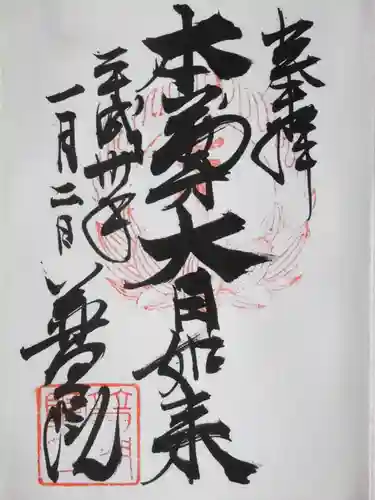 奉拝
本尊大日如来
平成卅年
一月二日
普門院